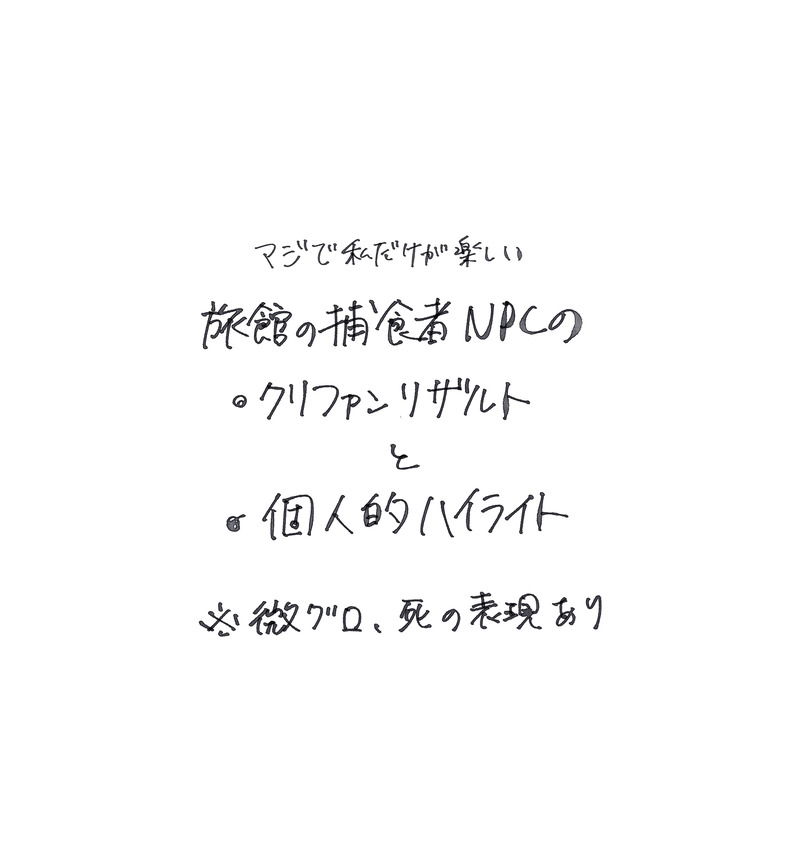 マジで私だけが楽しい
旅館の捕食者NPCの
・クリファンリザルト
と
・個人的ハイライト
※微グロ、死の表現あり